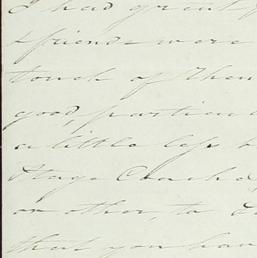 I had great
& friends were
touch of them
good, particul
a little less
Stage Coache
or other, to
that you have